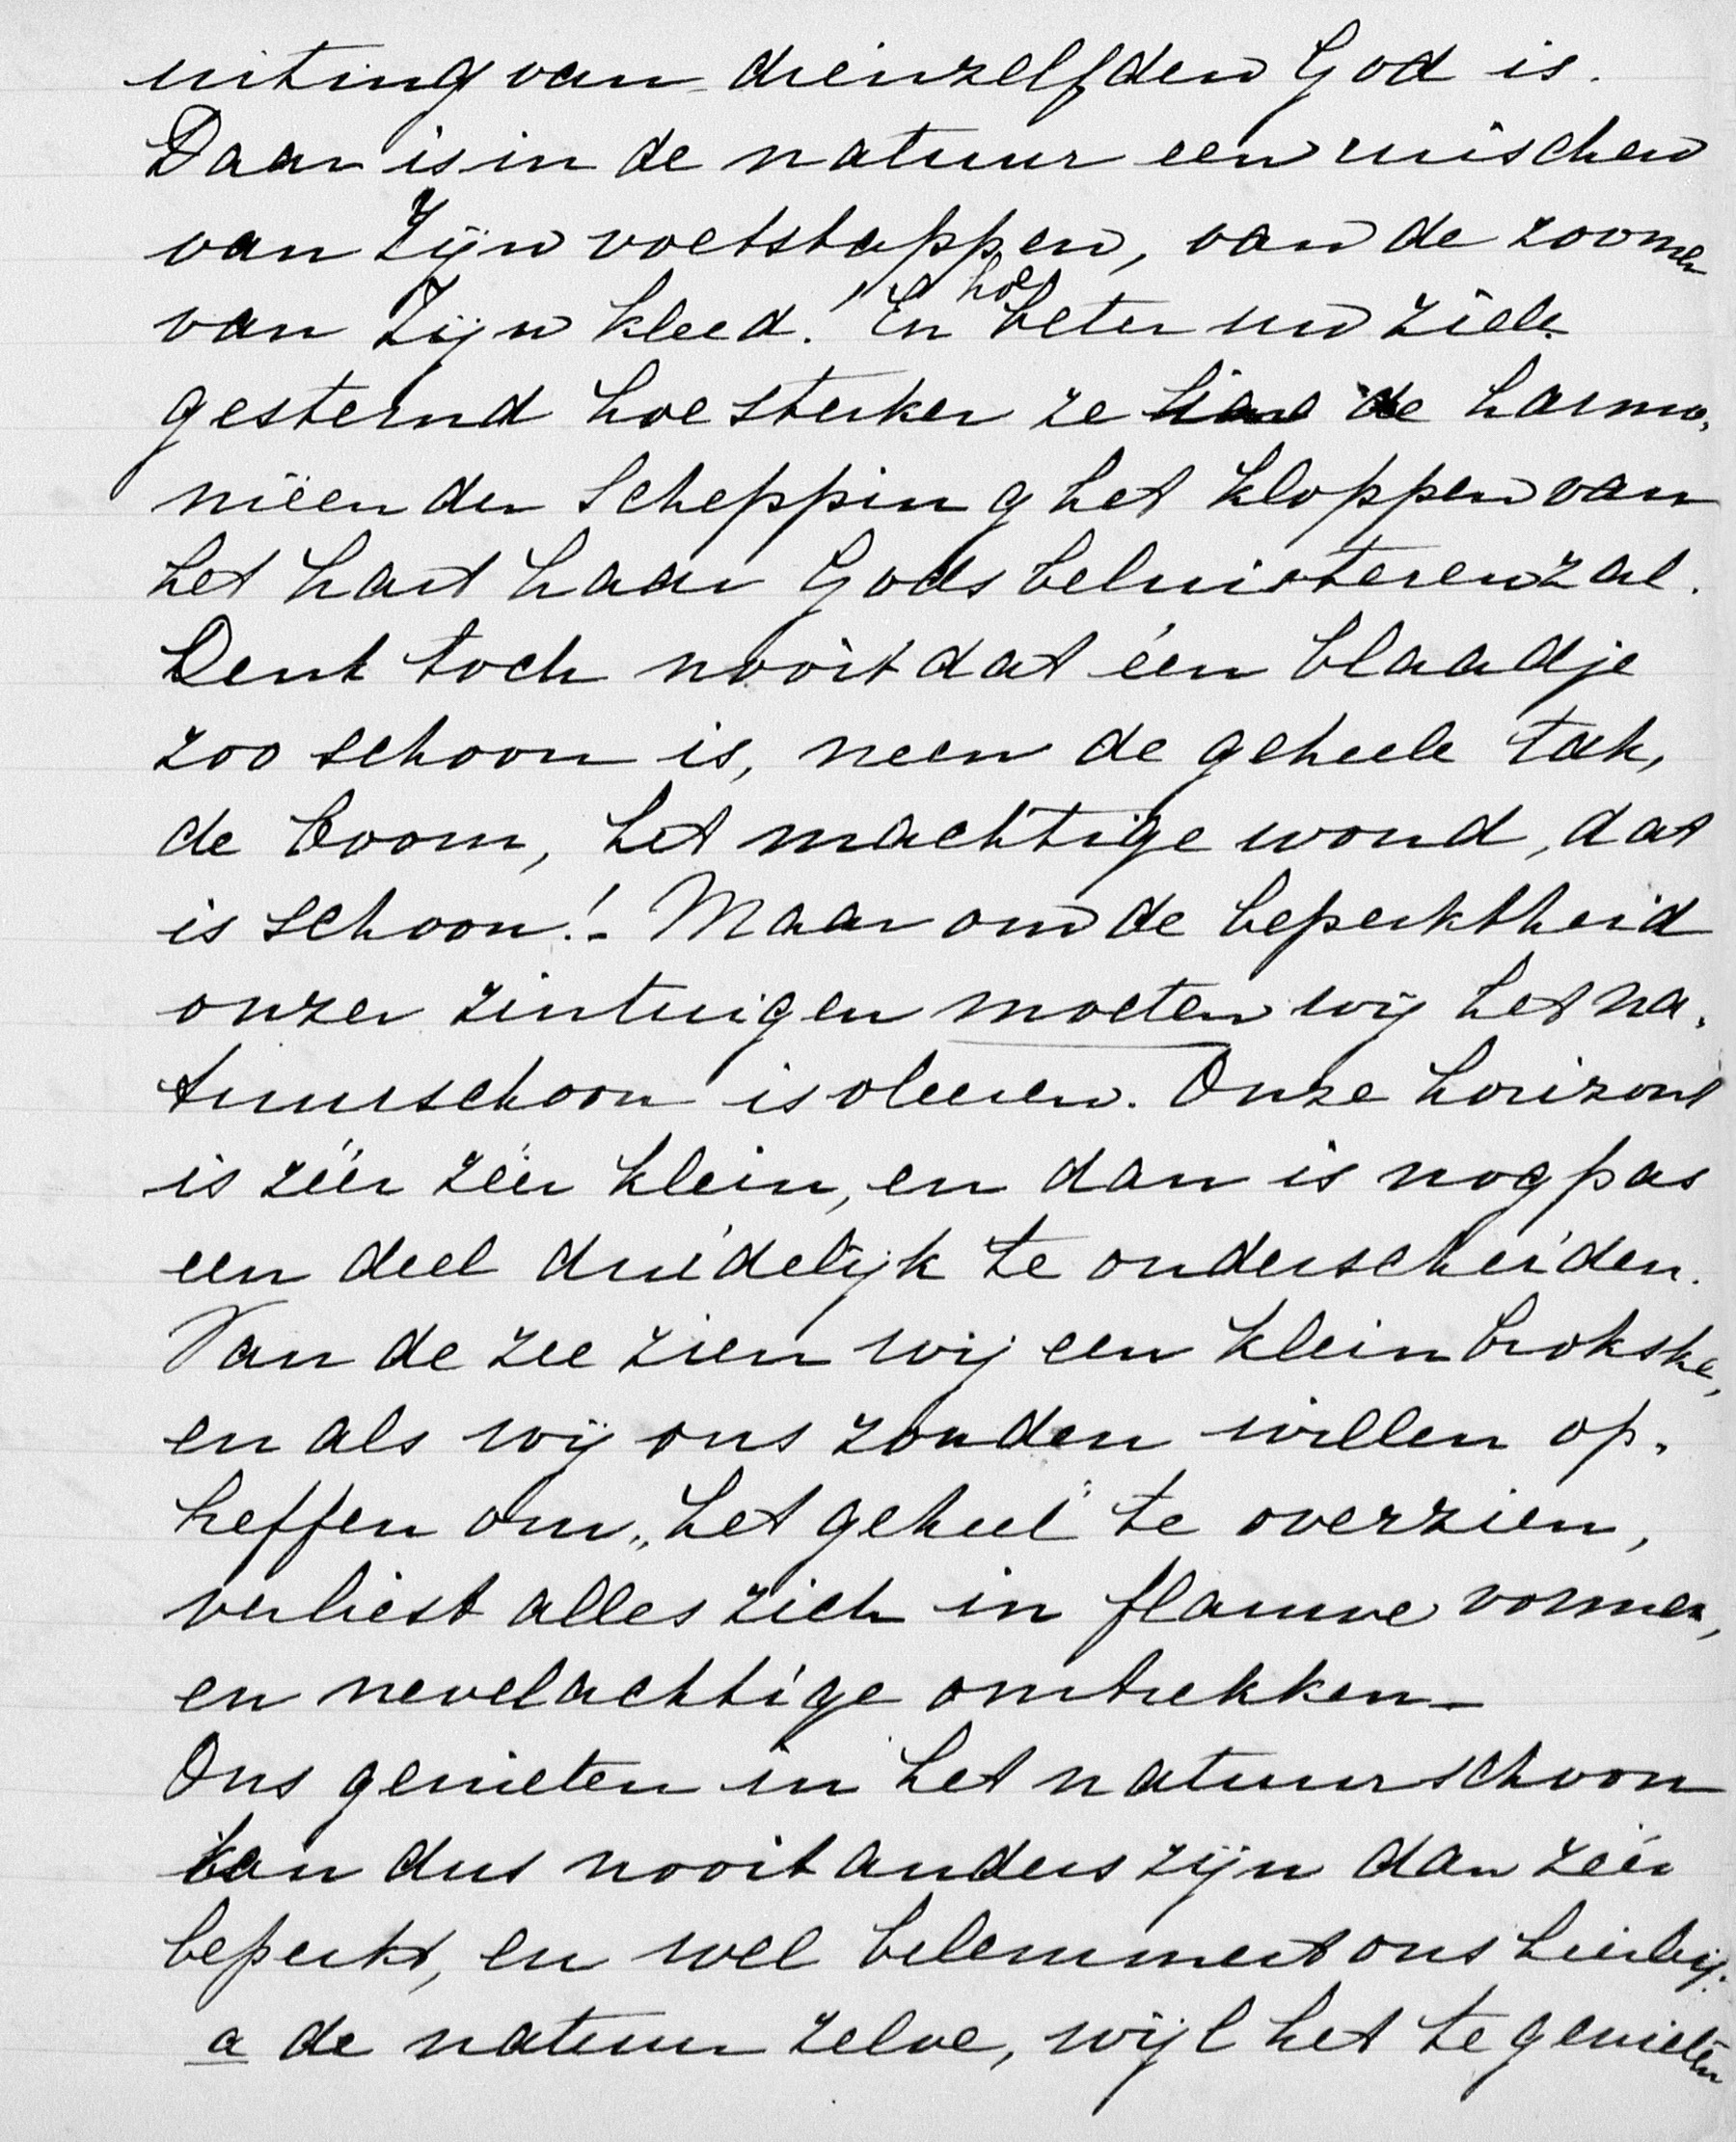 uiting van dienzelfden God is.
Daar is in de natuur een ruischen
van Zijn voetstappen, van de zoomen
van Zijn kleed! En hoe beter uw ziel
gesternd hoe sterker ze de harmo-
nieën der Schepping het kloppen van
het hart haar Gods beluisteren zal.
Denk toch nooit dat één blaadje
zoo schoon is, neen de geheele tak,
de boom, het machtige woud, dat
is schoon! - Maar om de beperktheid
onzer zintuigen moeten wij het na-
tuurschoon isoleeren. Onze horizont
is zéér zéér klein, en dan is nog pas
een deel duidelijk te onderscheiden.
Van de zee zien wij een klein brokske,
en als wij ons zouden willen op-
heffen om „het geheel" te overzien,
verliest alles zich in flauwe vormen,
en nevelachtige omtrekken -
Ons genieten in het natuurschoon
kan dus nooit anders zijn dan zéér
beperkt, en wel belemmert ons hierbij:
a de natuur zelve, wijl het te genieten